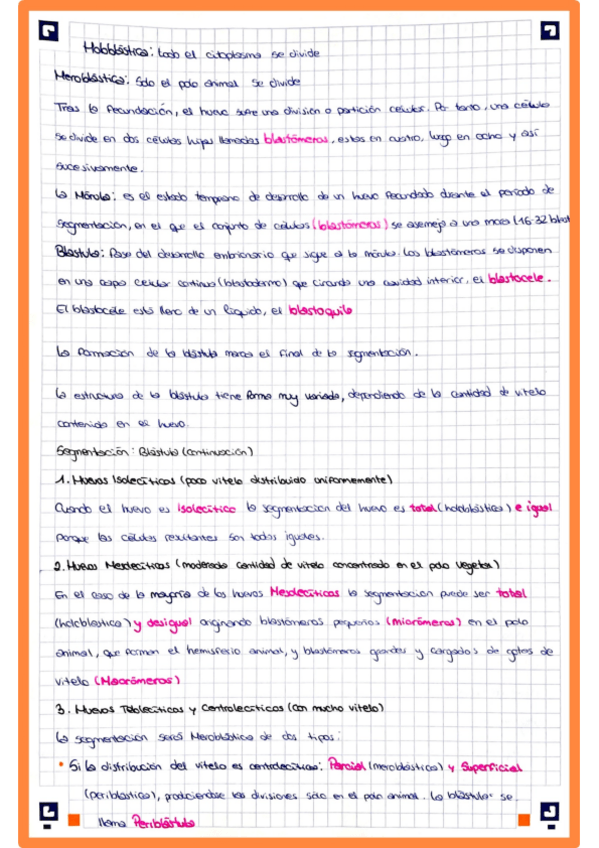 Holoblástica: todo el citoplasma se divide
Meroblástica: Solo el polo animal se divide
Tras la fecundación, el huevo sufre una división o partición celular. Por tanto, una célula
se divide en dos células hijas llamadas blastómeros, estas en cuatro, luego en ocho y así
sucesivamente.
La Mórula: es el estado temprano de desarrollo de un huevo fecundado durante el período de
segmentación, en el que el conjunto de células (blastómeros) se asemeja a una mora (16-32 blast
Blástula: Fase del desarrollo embrionario que sigue a la mórula. Los blastómeros se disponen
en una capa celular continua (blastodermo) que circunda una cavidad interior, el blastocele.
El blastocele está lleno de un líquido, el blastoquilo
La formación de la blástula marca el final de la segmentación.
La estructura de la blástula tiene forma muy variada, dependiendo de la cantidad de vitelo
contenido en el huevo.
Segmentación: Blástula (continuación)
1. Huevos Isolecíticos (poco vitelo distribuido uniformemente)
Cuando el huevo es isolecítico la segmentación del huevo es total (holoblástica) e igual
porque las células resultantes son todas iguales.
2. Huevos Mesolecíticos (moderada cantidad de vitelo concentrado en el polo vegetal)
En el caso de la mayoría de los huevos Mesolecíticos la segmentación puede ser total
(holoblastica) y desigual originando blastómeros pequeños (micrómeros) en el polo
animal, que forman el hemisferio animal, y blastómeros grandes y cargados de gotas de
vitelo (Macrómeros)
3. Huevos Telolecíticos y Centrolecíticos (con mucho vitelo)
La segmentación será Meroblástica de dos tipos:
• Si la distribución del vitelo es centrolecítica: Parcial (meroblástica) y Superficial
(periblastica), produciendose las divisiones sólo en el polo animal. La blástula se
llama Periblástula